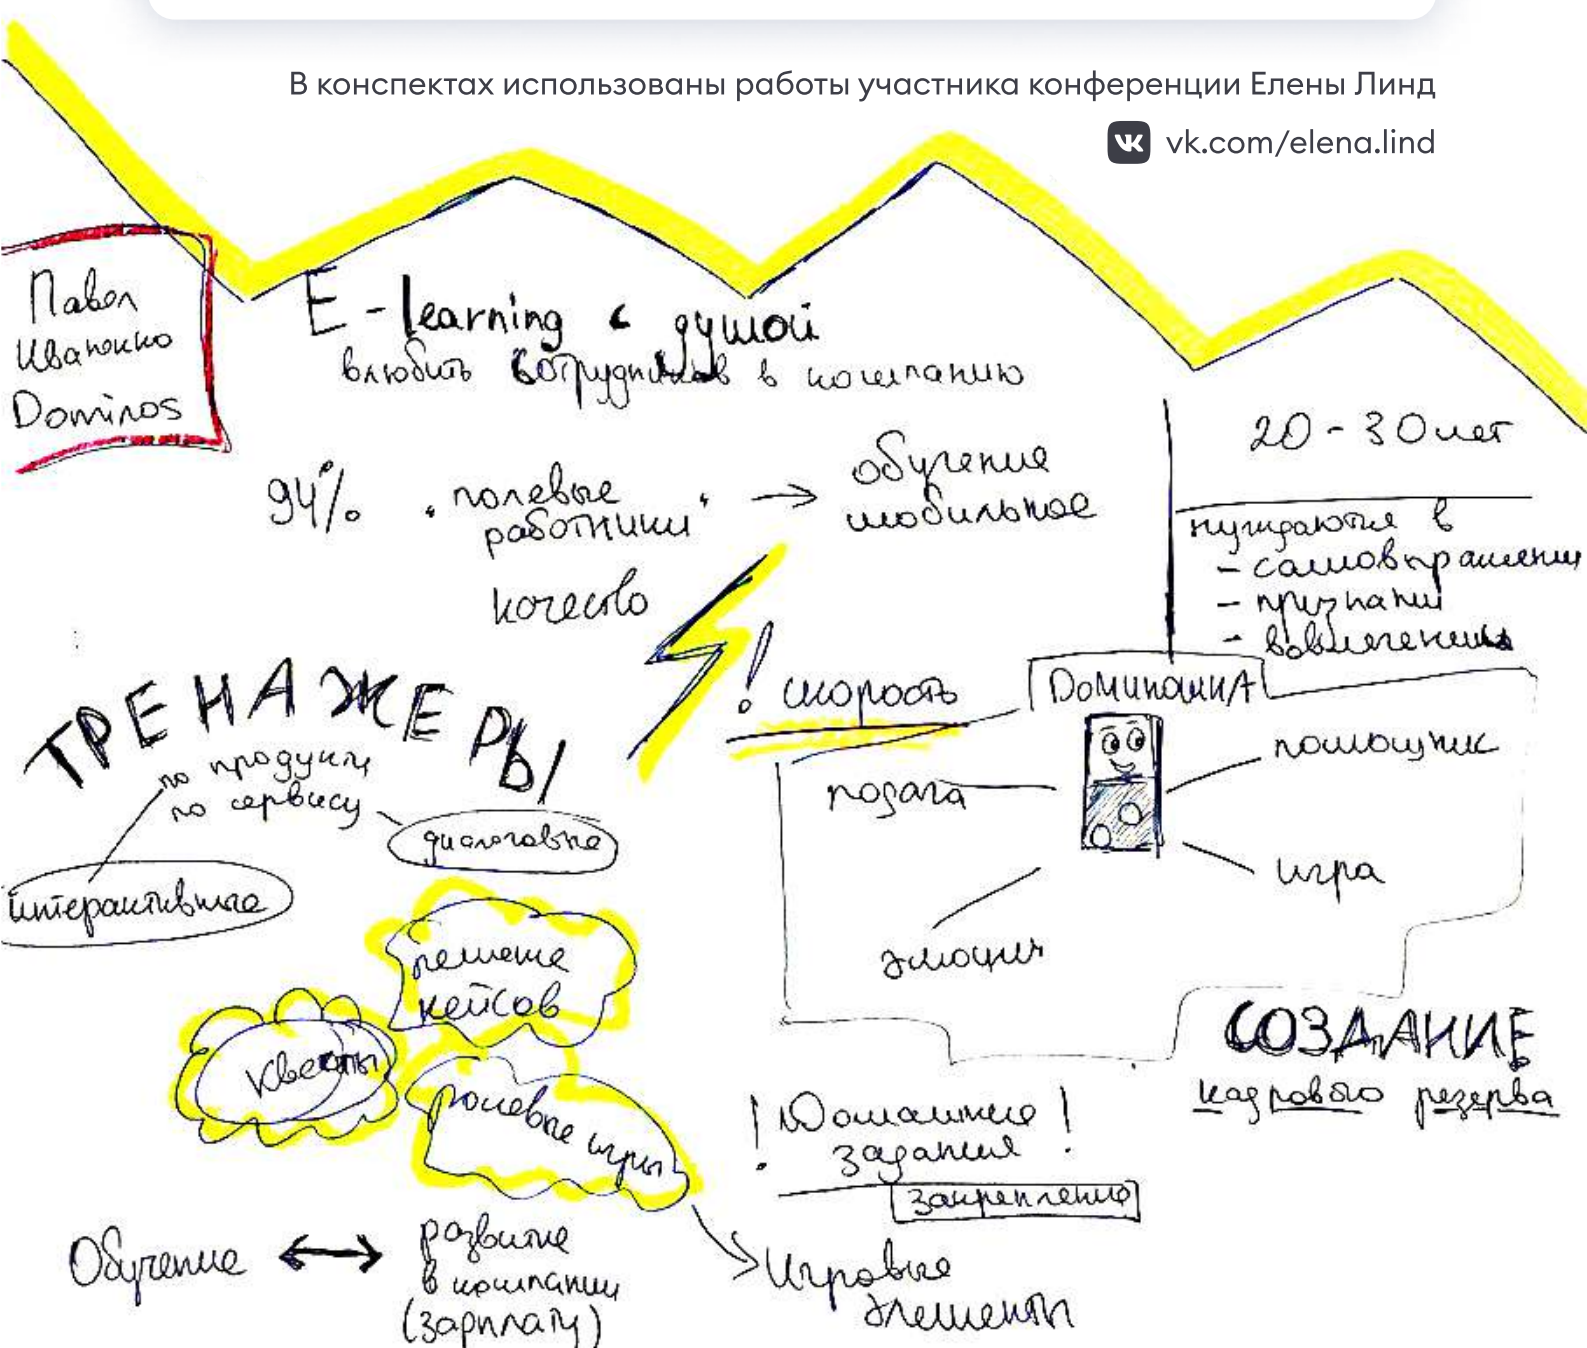 В конспектах использованы работы участника конференции Елены Линд
vk.com/elena.lind
Павел
Иваненко
Dominos
E-learning с душой
влюбить сотрудников в компанию
94% "полевые
работники" → обучение
мобильное
качество
! скорость
20-30 лет
нуждаются в
- самовыражении
- признании
- вовлечении
ТРЕНАЖЕРЫ
по продукту
по сервису
интерактивные
диалоговые
Доминошка
подача
помощник
эмоция
игра
решение
кейсов
квесты
ролевые игры
СОЗДАНИЕ
кадрового резерва
! Домашние !
задания
закрепление
Обучение ↔ развитие
в компании
(зарплату)
Игровые
элементы